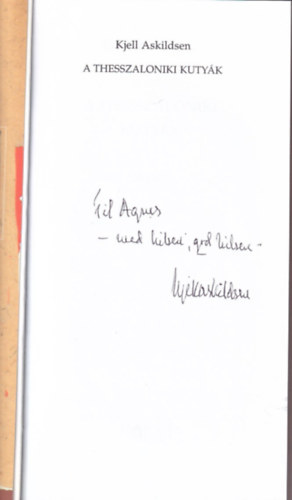 Kjell Askildsen
A THESSZALONIKI KUTYÁK
Til Agnes
– med hilsen, god hilsen –
Kjell Askildsen